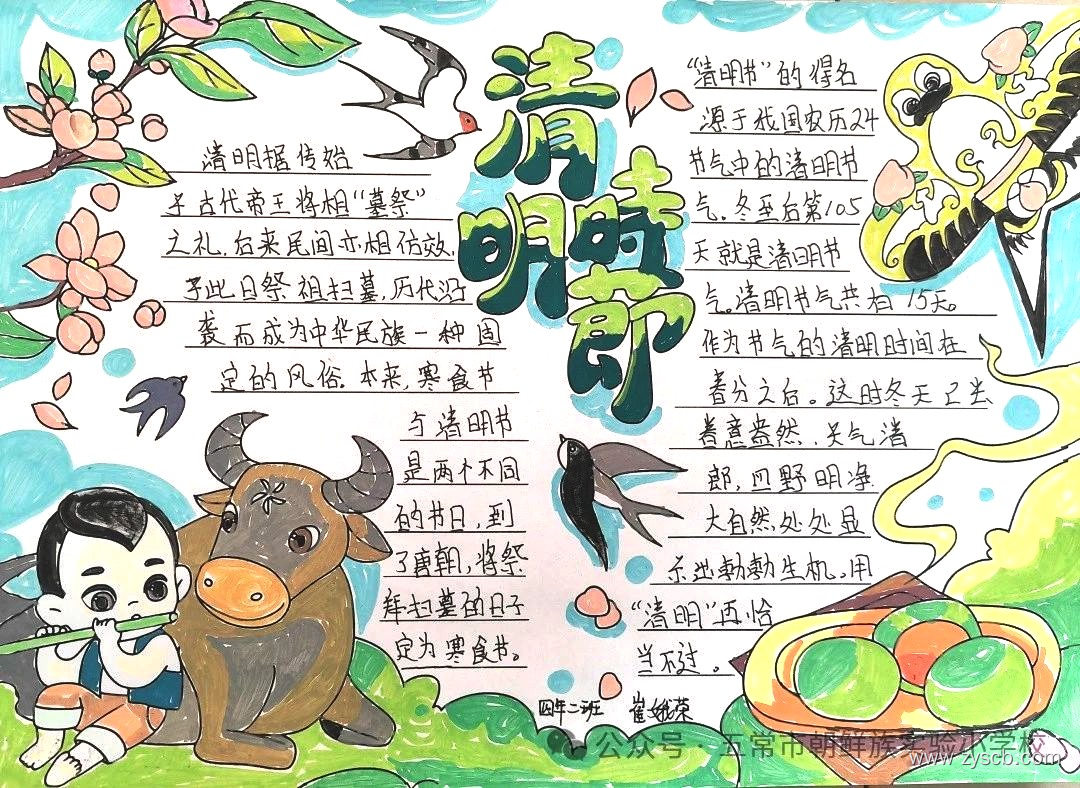 清明時節
清明据传始
于古代帝王将相“墓祭”
之礼,后来民间亦相仿效
于此日祭祖扫墓,历代沿
袭而成为中华民族一种固
定的风俗.本来,寒食节
与清明节
是两个不同
的节日,到
了唐朝,将祭
拜扫墓的日子
定为寒食节。
“清明节”的得名
源于我国农历24
节气中的清明节
气.冬至后第105
天就是清明节
气.清明节气共有15天。
作为节气的清明时间在
春分之后。这时冬天已去
春意盎然.天气清
郎,四野明净
大自然处处显
示出勃勃生机.用
“清明”再恰
当不过。
四年二班 崔娥荣
公众号·五常市朝鲜族实验小学校
www.zyscb.com